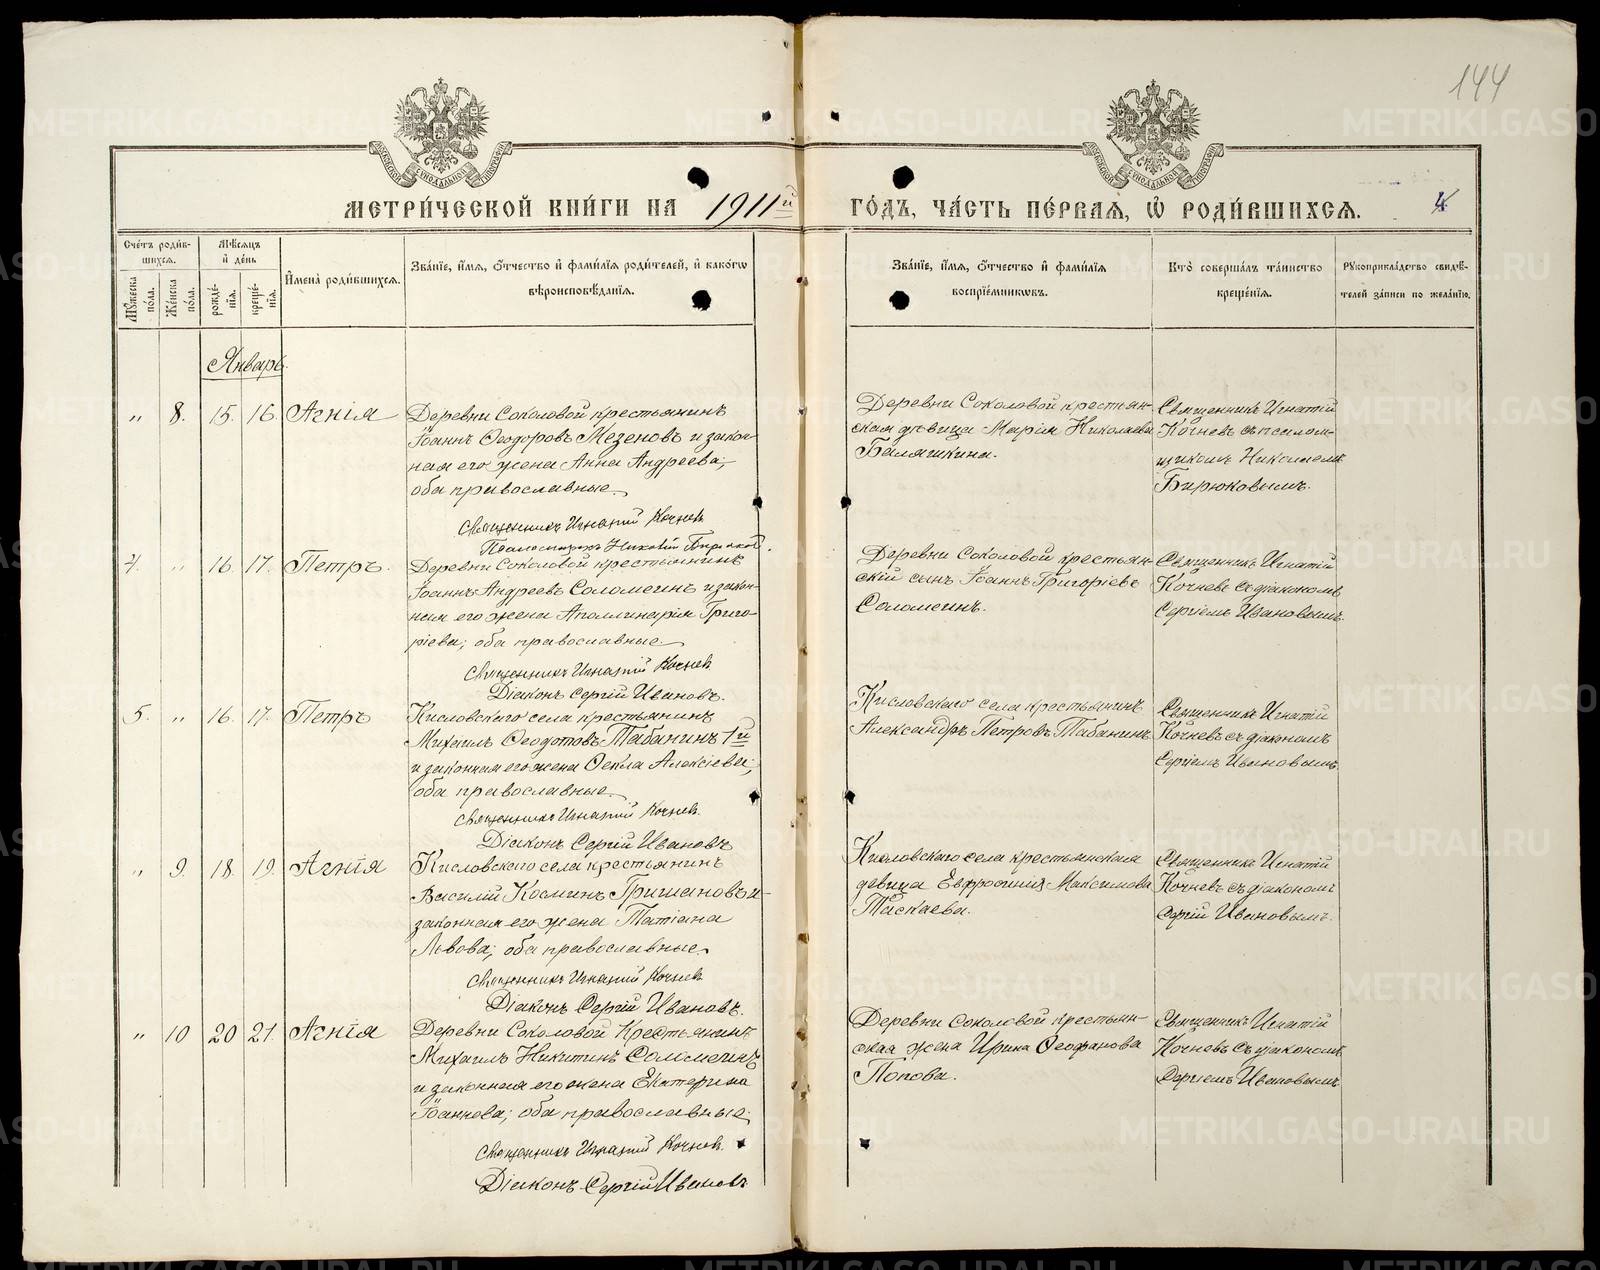 144
МЕТРИ́ЧЕСКОЙ КНИ́ГИ НА 1911й
ГО́ДЪ, ЧА́СТЬ ПЕ́РВАЯ, Ѡ РОДИ́ВШИХСЯ.
4
Сче́тъ роди́в-
шихся.
Мѣ́сяцъ
и́ де́нь
Мꙋ́жеска
по́ла.
Же́нска
по́ла.
рожде́-
нїѧ.
креще́-
нїѧ.
И҆мена̀ роди́вшихся.
Зва́нїе, и҆́мѧ, ѻ҆́тчество и҆ фами́лїѧ роди́телей, и҆ како́гѡ
вѣроисповѣ́данїѧ.
Зва́нїе, и҆́мѧ, ѻ҆́тчество и҆ фами́лїѧ
воспрїе́мникѡвъ.
Кто̀ соверша́лъ та́инство
креще́нїѧ.
Рꙋкоприкла́дство свидѣ́-
телей за́писи по жела́нїю.
Январь.
„ 8. 15. 16. Агнія
Деревни Соколовой крестьянинъ
Іоаннъ Ѳеодоровъ Мезеновъ и закон-
ная его жена Анна Андреева;
оба православные.
Священникъ Игнатій Кочневъ
Псаломщикъ Николай Бирюковъ.
Деревни Соколовой крестьян-
ская дѣвица Марія Николаева
Балашкина.
Священникъ Игнатій
Кочневъ съ псалом-
щикомъ Николаемъ
Бирюковымъ.
4. „ 16. 17. Петръ.
Деревни Соколовой крестьянинъ
Іоаннъ Андреевъ Соломеинъ и закон-
ная его жена Аполлинарія Григо-
рьева; оба православные.
Священникъ Игнатій Кочневъ
Діаконъ Сергій Ивановъ.
Деревни Соколовой крестьян-
скій сынъ Іоаннъ Григоріевъ
Соломеинъ.
Священникъ Игнатій
Кочневъ съ діакономъ
Сергіемъ Ивановымъ.
5. „ 16. 17. Петръ
Кисловскаго села крестьянинъ
Михаилъ Ѳеодотовъ Табанинъ 1й
и законная его жена Ѳекла Алексіева;
оба православные.
Священникъ Игнатій Кочневъ.
Діаконъ Сергій Ивановъ
Кисловскаго села крестьянинъ
Александръ Петровъ Табанинъ.
Священникъ Игнатій
Кочневъ съ діакономъ
Сергіемъ Ивановымъ.
„ 9. 18. 19. Агнія
Кисловскаго села крестьянинъ
Василій Косминъ Гришановъ и
законная его жена Татіана
Львова; оба православные.
Священникъ Игнатій Кочневъ
Діаконъ Сергій Ивановъ.
Кисловскаго села крестьянская
девица Евфросинія Максимова
Таскаева.
Священникъ Игнатій
Кочневъ съ діакономъ
Сергій Ивановымъ.
„ 10 20 21. Агнія
Деревни Соколовой Крестьянинъ
Михаилъ Никитинъ Соломеинъ
и законная его жена Екатерина
Іоаннова; оба православные.
Священникъ Игнатій Кочневъ.
Діаконъ Сергій Ивановъ
Деревни Соколовой крестьян-
ская жена Ирина Ѳеофанова
Попова.
Священникъ Игнатій
Кочневъ съ діакономъ
Сергіемъ Ивановымъ.